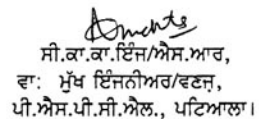 ਸੀ.ਕਾ.ਕਾ.ਇੰਜ/ਐਸ.ਆਰ,
ਵਾ: ਮੁੱਖ ਇੰਜਨੀਅਰ/ਵਣਜ,
ਪੀ.ਐਸ.ਪੀ.ਸੀ.ਐਲ., ਪਟਿਆਲਾ।